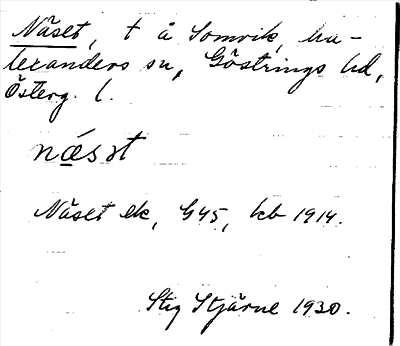 Näset, t å Somvik, hu-
lexanders sn, Göstrings hd,
Österg. l.
næsət
Näset ek, G45, kb 1914.
Stig Stjärne 1930.